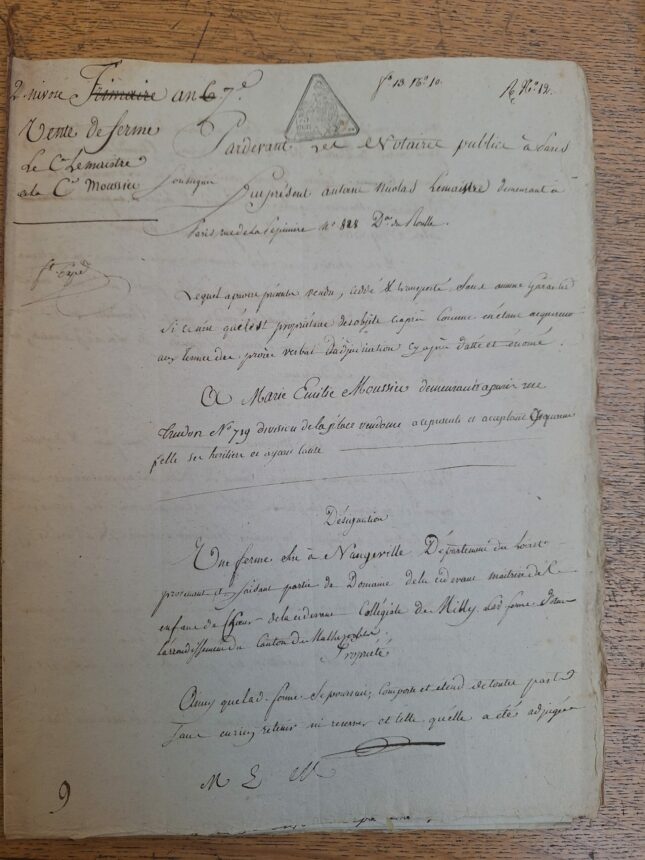 2 nivose Frimaire an 6 7e
fo 13 No 10.
No 12.
Vente de ferme
Le Cen Lemaistre
a la Cne Moussier
Pardevant Les Notaires publics à Paris
soussignés
fut présent antoine Nicolas Lemaistre demeurant à
Paris rue de la Pépinière No 828 Don du Roulle.
Lequel a par ces présentes vendu, cédé & transporté Sans aucune Garantie
Si ce n'est qu'il est propriétaire des objets ci après Comme en étant acquereur
aux termes des procès verbal d'adjudication cy après datté et énoncé.
A Marie Emilie Moussier demeurante a paris rue
No 719 division de la place vendome a ce présente et acceptante acquereure
p elle ses héritiers et ayans cause
Désignation
Une ferme sise à Nangeville Département du Loiret
provenant et faisant partie du Domaine de la cidevant maitrise des
enfans de Choeur de la cidevante Collégiale de Milly Lad. ferme
L'arrondissement du Canton de Malhesherbes
Propriété
Ainsy que lad. ferme se poursuit, Comporte et étend de toutes parts
Sans en rien retenir ni reserver et telle qu'elle a été adjugée
M E M
9